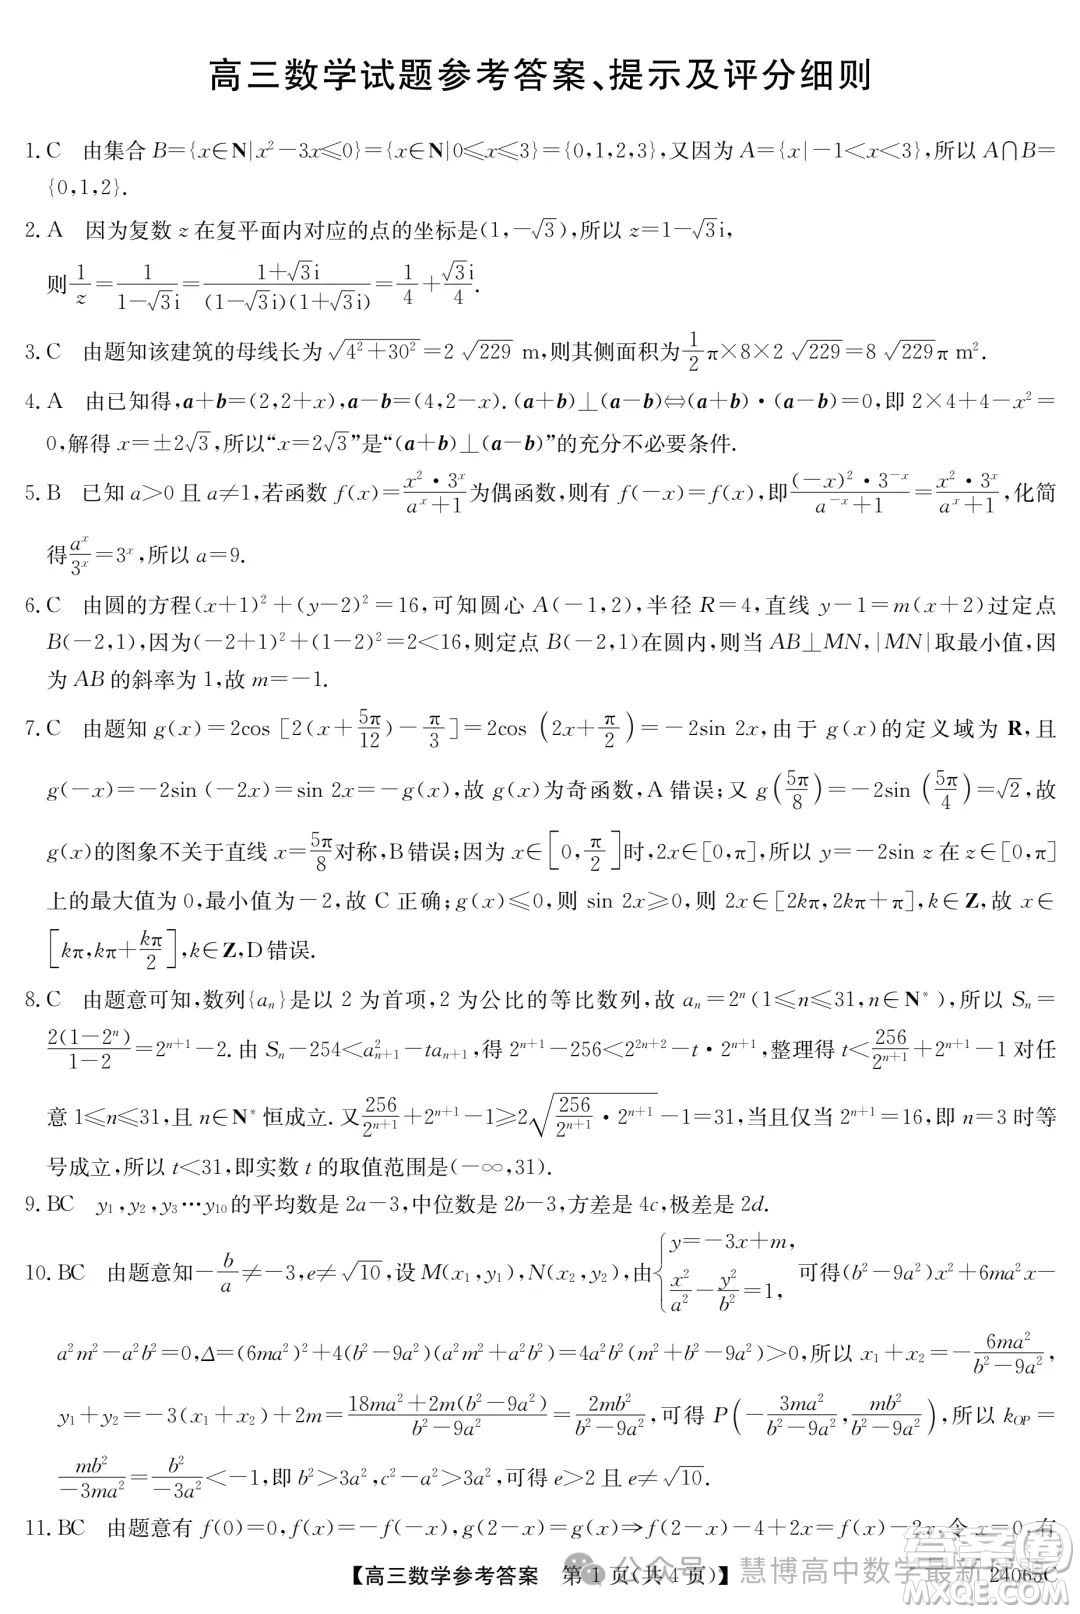 高三数学试题参考答案、提示及评分细则
1. C　由集合 B={x∈N|x²-3x≤0}={x∈N|0≤x≤3}={0,1,2,3},又因为 A={x|-1<x<3},所以 A∩B=
{0,1,2}.
2. A　因为复数 z 在复平面内对应的点的坐标是(1,-√3),所以 z=1-√3i,
则 1/z = 1/(1-√3i) = (1+√3i)/((1-√3i)(1+√3i)) = 1/4 + √3i/4.
3. C　由题知该建筑的母线长为 √(4²+30²)=2√229 m,则其侧面积为 1/2 π×8×2√229=8√229π m².
4. A　由已知得,a+b=(2,2+x),a-b=(4,2-x). (a+b)⊥(a-b)⇔(a+b)·(a-b)=0,即 2×4+4-x²=
0,解得 x=±2√3,所以“x=2√3”是“(a+b)⊥(a-b)”的充分不必要条件.
5. B　已知 a>0 且 a≠1,若函数 f(x)=(x²·3ˣ)/(aˣ+1) 为偶函数,则有 f(-x)=f(x),即 ((-x)²·3⁻ˣ)/(a⁻ˣ+1)=(x²·3ˣ)/(aˣ+1),化简
得 aˣ/3ˣ=3ˣ,所以 a=9.
6. C　由圆的方程(x+1)²+(y-2)²=16,可知圆心 A(-1,2),半径 R=4,直线 y-1=m(x+2)过定点
B(-2,1),因为(-2+1)²+(1-2)²=2<16,则定点 B(-2,1)在圆内,则当 AB⊥MN,|MN|取最小值,因
为 AB 的斜率为 1,故 m=-1.
7. C　由题知 g(x)=2cos[2(x+5π/12)-π/3]=2cos(2x+π/2)=-2sin 2x,由于 g(x)的定义域为 R,且
g(-x)=-2sin(-2x)=sin 2x=-g(x),故 g(x)为奇函数,A 错误;又 g(5π/8)=-2sin(5π/4)=√2,故
g(x)的图象不关于直线 x=5π/8 对称,B 错误;因为 x∈[0,π/2]时,2x∈[0,π],所以 y=-2sin z 在 z∈[0,π]
上的最大值为 0,最小值为-2,故 C 正确;g(x)≤0,则 sin 2x≥0,则 2x∈[2kπ,2kπ+π],k∈Z,故 x∈
[kπ,kπ+kπ/2],k∈Z,D 错误.
8. C　由题意可知,数列{aₙ}是以 2 为首项,2 为公比的等比数列,故 aₙ=2ⁿ(1≤n≤31,n∈N*),所以 Sₙ=
2(1-2ⁿ)/(1-2)=2ⁿ⁺¹-2.由 Sₙ-254<a²ₙ₊₁-taₙ₊₁,得 2ⁿ⁺¹-256<2²ⁿ⁺²-t·2ⁿ⁺¹,整理得 t<256/2ⁿ⁺¹+2ⁿ⁺¹-1 对任
意 1≤n≤31,且 n∈N* 恒成立.又 256/2ⁿ⁺¹+2ⁿ⁺¹-1≥2√(256/2ⁿ⁺¹·2ⁿ⁺¹)-1=31,当且仅当 2ⁿ⁺¹=16,即 n=3 时等
号成立,所以 t<31,即实数 t 的取值范围是(-∞,31).
9. BC　y₁,y₂,y₃⋯y₁₀的平均数是 2a-3,中位数是 2b-3,方差是 4c,极差是 2d.
10. BC　由题意知 -b/a≠-3,e≠√10,设 M(x₁,y₁),N(x₂,y₂),由{y=-3x+m, x²/a²-y²/b²=1, 可得(b²-9a²)x²+6ma²x-
a²m²-a²b²=0,Δ=(6ma²)²+4(b²-9a²)(a²m²+a²b²)=4a²b²(m²+b²-9a²)>0,所以 x₁+x₂=-6ma²/(b²-9a²),
y₁+y₂=-3(x₁+x₂)+2m=(18ma²+2m(b²-9a²))/(b²-9a²)=2mb²/(b²-9a²),可得 P(-3ma²/(b²-9a²),mb²/(b²-9a²)),所以 k_OP=
mb²/(-3ma²)=b²/(-3a²)<-1,即 b²>3a²,c²-a²>3a²,可得 e>2 且 e≠√10.
11. BC　由题意有 f(0)=0,f(x)=-f(-x),g(2-x)=g(x)⇒f(2-x)-4+2x=f(x)-2x,令 x=0,有
【高三数学参考答案　第 1 页(共 4 页)】　24065C
公众号 · 慧博高中数学最新试题
答案圈
MXQE.COM